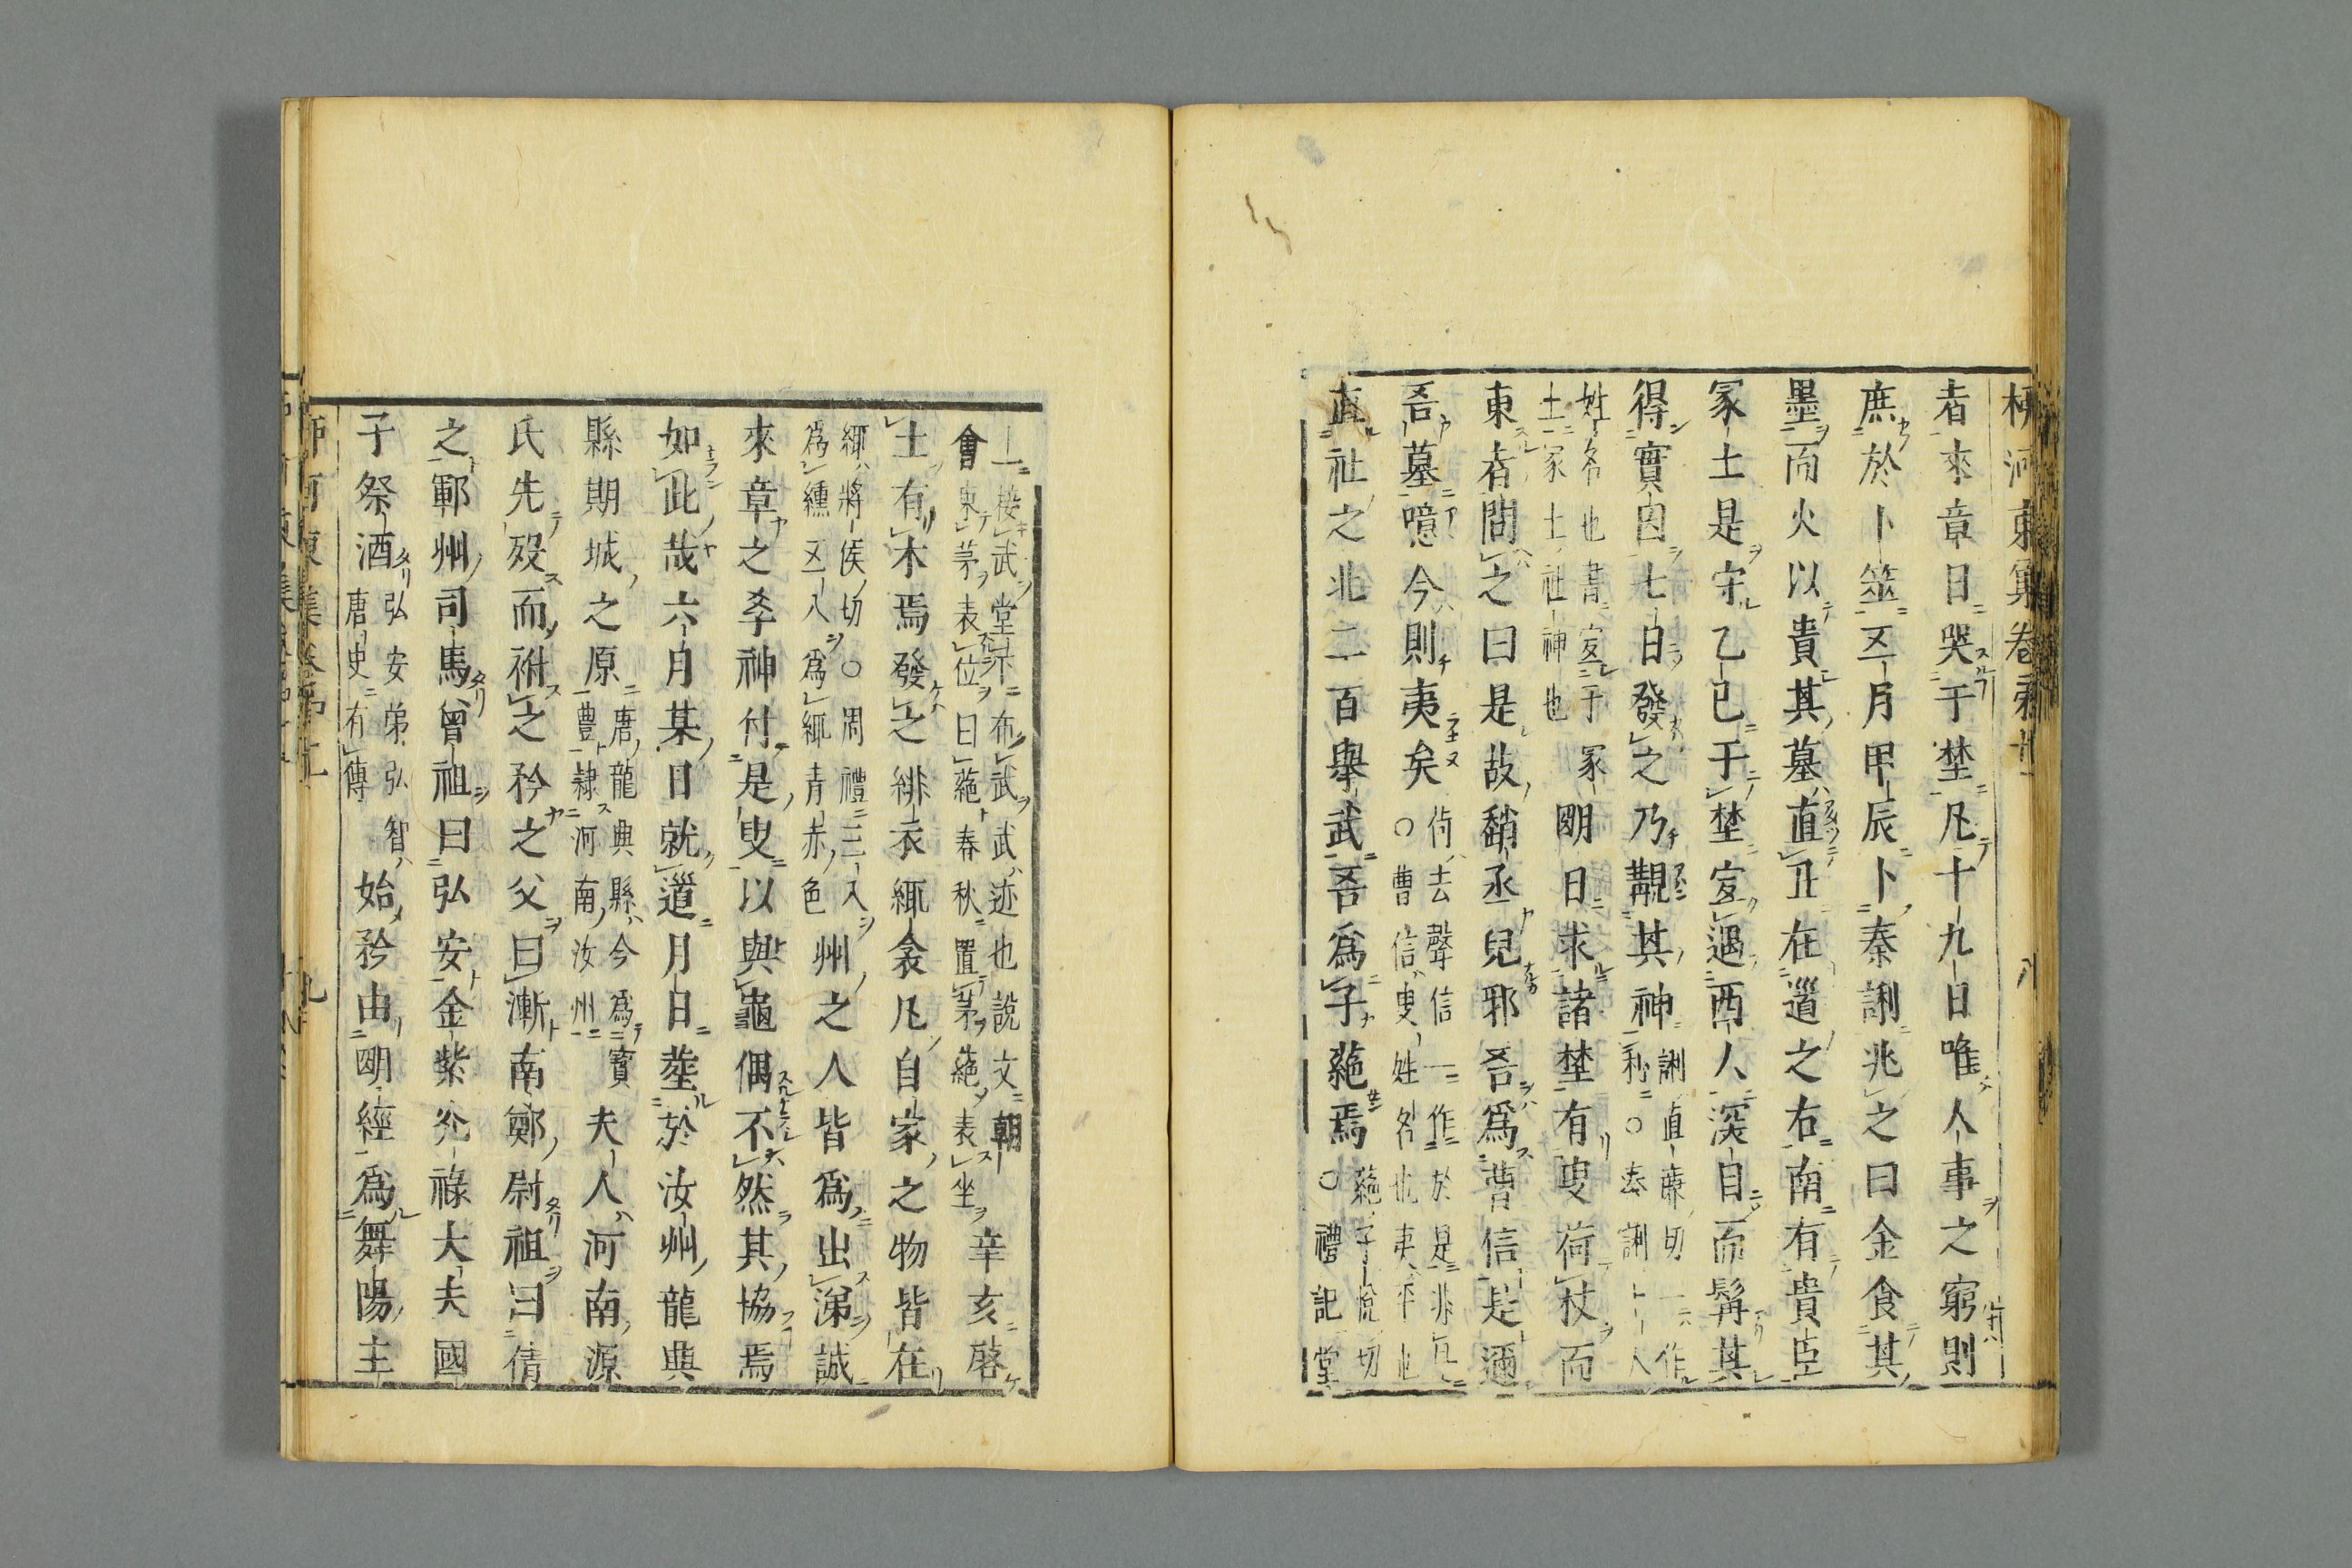 柳河東集卷第十一 八
者來章日哭于埜凡十九日唯人事之窮則
庶於卜筮五月甲辰卜秦誗兆之曰金食其
墨而火以貴其墓直丑在道之右南有貴臣
冢土是守乙巳于埜宜遇西人深目而髯其
得實因七日發之乃覯其神誗直廉切一作利○秦誗卜人
姓名也書宜于冢土冢土社神也明日求諸埜有叟荷杖而
東者問之曰是故趙丞兒邪吾爲曹信是邇
吾墓噫今則夷矣荷去聲信一作於是非○曹信叟姓名也夷平也
直社之北二百舉武吾爲子蕝焉蕝子悅切○禮記堂
上接武堂下布武武迹也說文朝會束茅表位曰蕝春秋置茅蕝表坐辛亥啓
土有木焉發之緋衣緅衾凡自家之物皆在
緅將侯切○周禮三入爲纁五入爲緅青赤色州之人皆爲出涕誠
來章之孝神付是叟以與龜偶不然其協焉
如此哉六月某日就道月日塟於汝州龍興
縣期城之原唐龍興縣今爲寶豐隸河南汝州夫人河南源
氏先歿而祔之矜之父曰漸南鄭尉祖曰倩
之鄆州司馬曾祖曰弘安金紫光祿大夫國
子祭酒弘安弟弘智唐史有傳始矜由明經爲舞陽主
柳河東集卷第十一 九